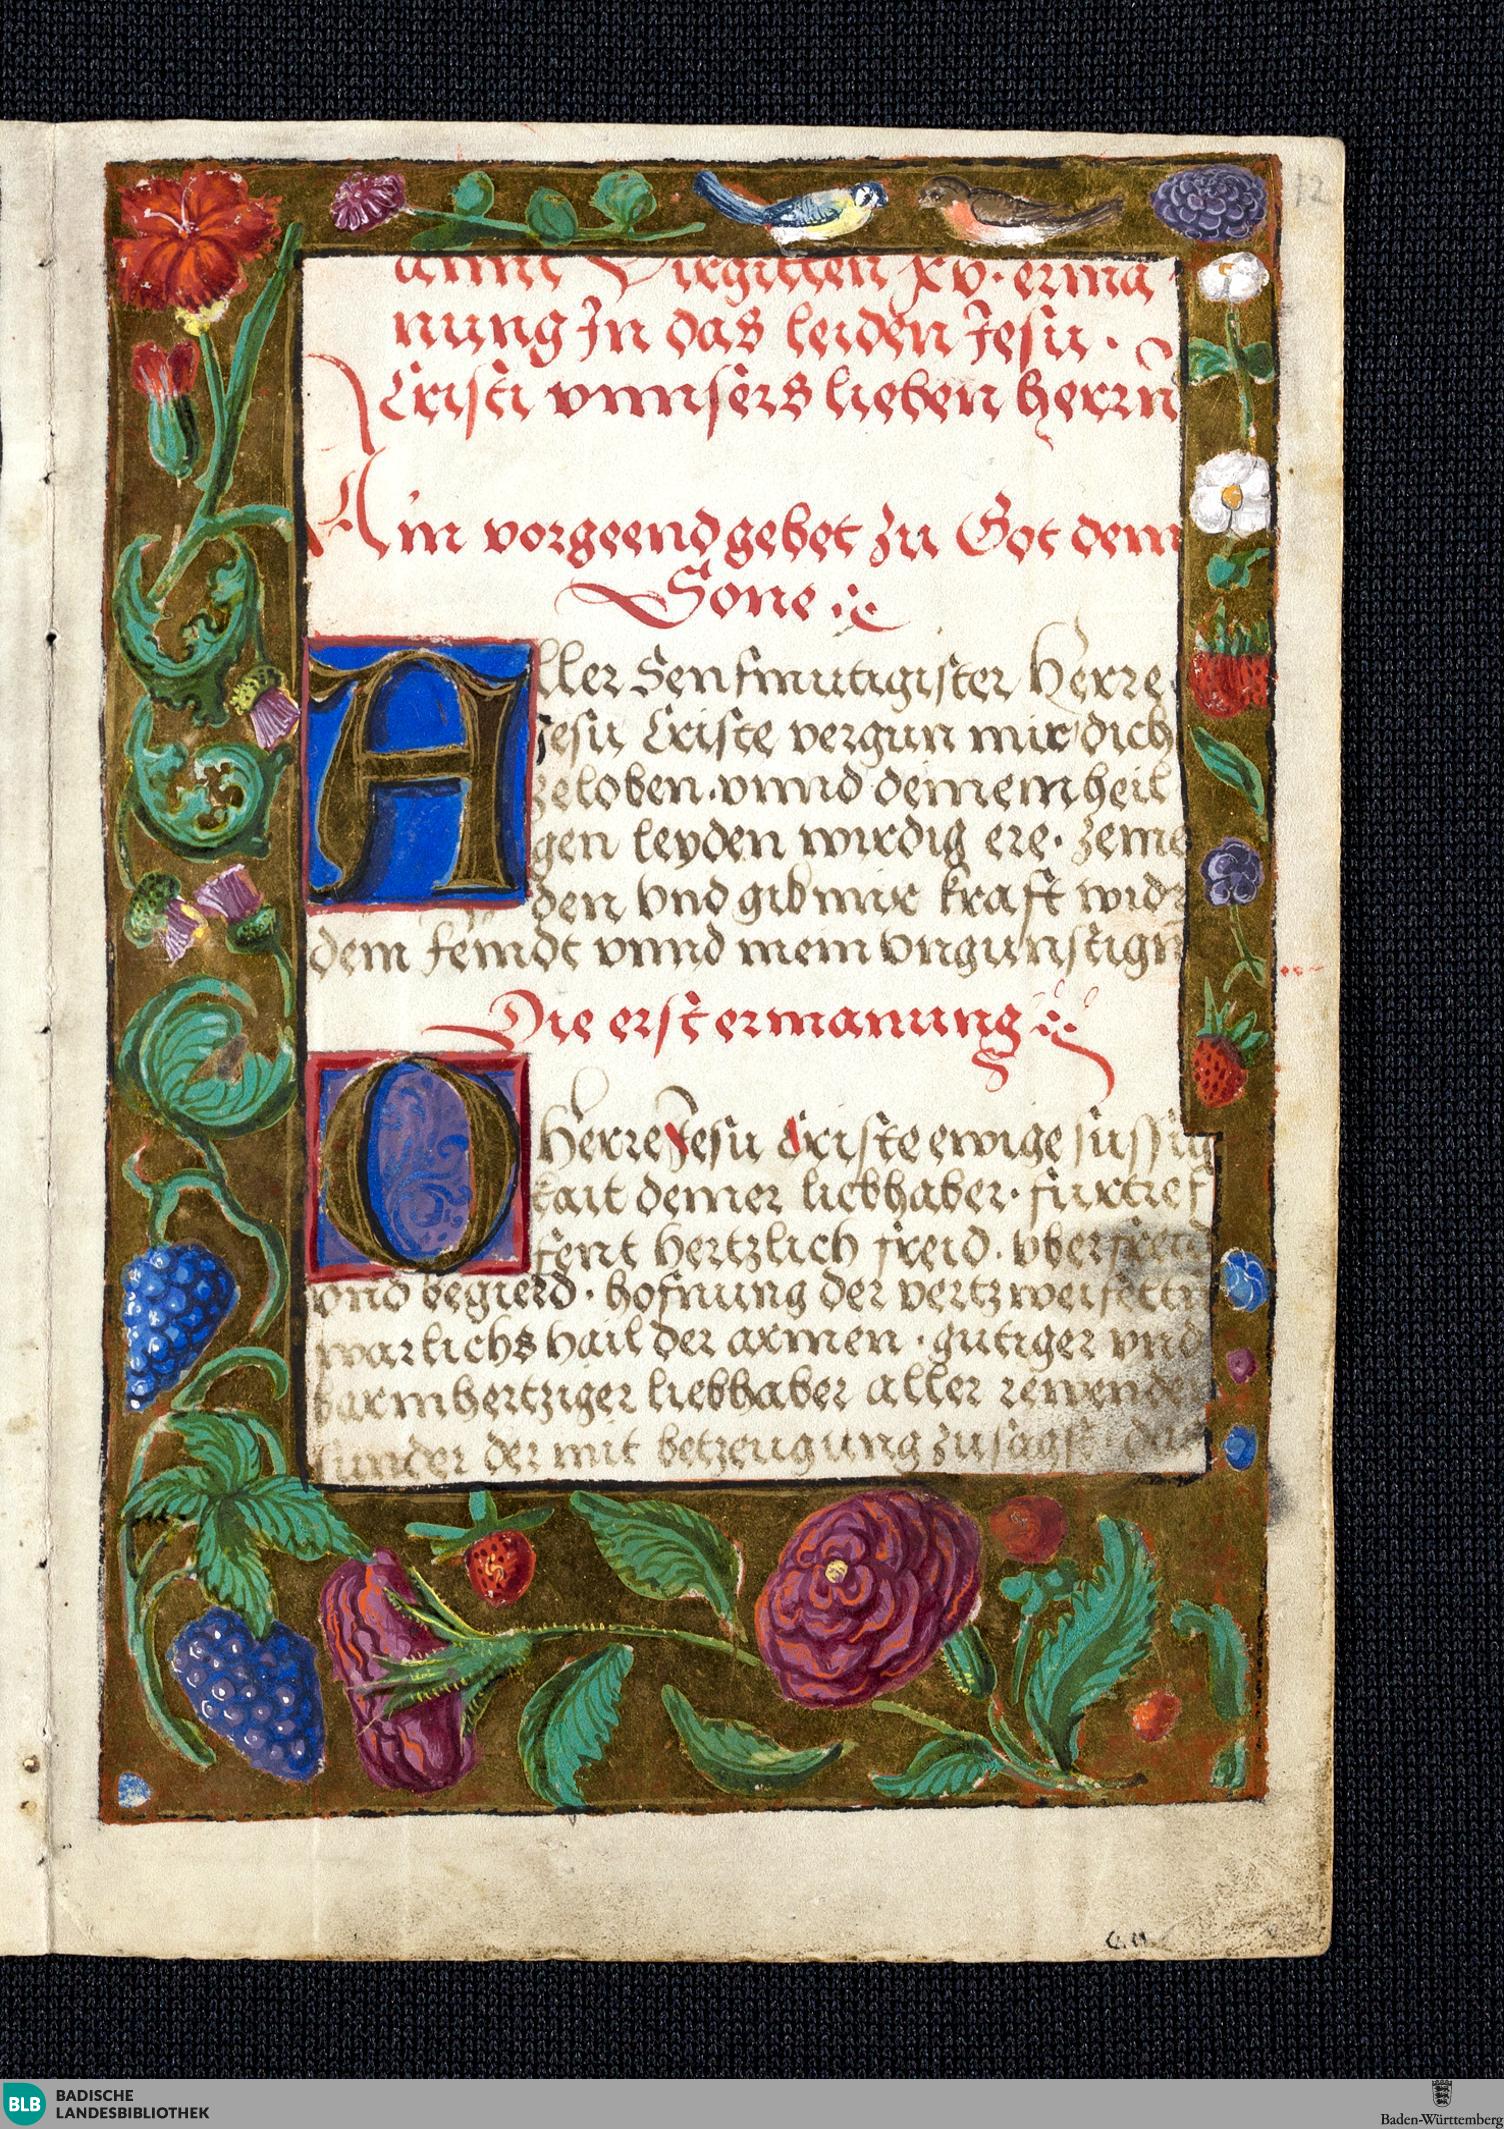 Birgitten xv. erma
nung In das leiden Jesu.
Cristi vnnsers lieben herrn
Ain vorgeend gebet zu Got dem
Sone
Aller Senfmutigister Herre
Jesu Criste vergun mir dich
zeloben. vnnd deinem heil
gen leyden wirdig ere. zeme
den vnd gib mir kraft wider
dem feindt vnnd mein vngunstign
Die erst ermanung
O Herre Jesu Criste ewige sussig
kait deiner liebhaber. furtref
fent hertzlich freid. vber freid
vnd begierd. hofnung der vertzweifettn
warlichs hail der armen. gutiger vnd
barmhertziger liebhaber aller rewender
sunder der mit betzeugung zu sagst das
12
BLB
BADISCHE
LANDESBIBLIOTHEK
Baden-Württemberg